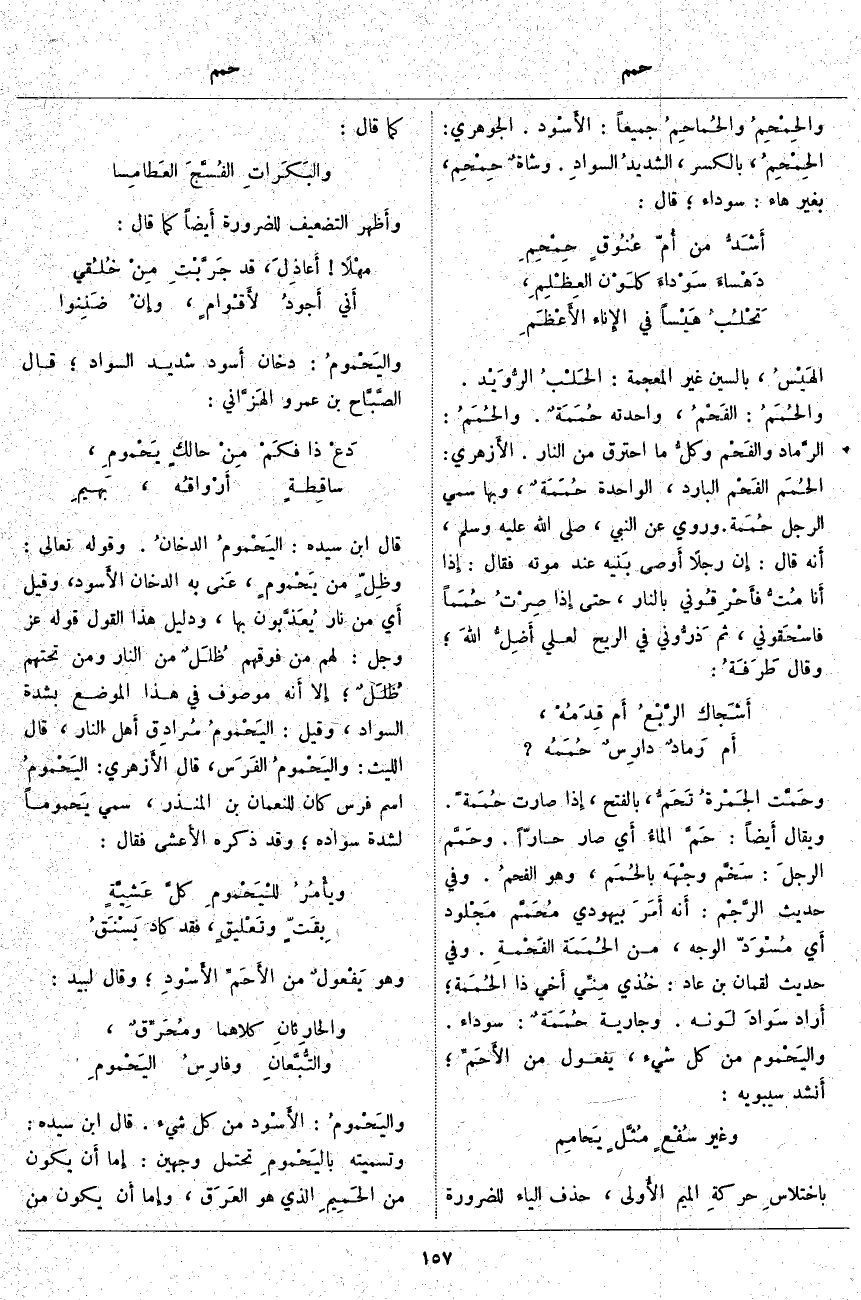 حمم
حمم
والحِمْحِمُ والحُماحِمُ جميعاً : الأَسْود . الجوهري :
الحِمْحِمُ ، بالكسر ، الشديدُ السوادِ . وشاةٌ حِمْحِم ،
بغير هاء : سوداء ؛ قال :
أَشَدُّ من أُمّ عُنُوقٍ حِمْحِمِ
دَهْساءَ سَوْداءَ كلَوْن العِظْلِمِ ،
تَحْلُبُ هَيْساً في الإناء الأَعْظَمِ
الهَيْسُ ، بالسين غير المعجمة : الحَلْبُ الرُّوَيْد .
والحُمَمُ : الفَحْمُ ، واحدته حُمَمَةٌ . والحُمَمُ :
الرَّماد والفَحْم وكلُّ ما احترق من النار . الأَزهري :
الحُمَم الفَحْم البارد ، الواحدة حُمَمَةٌ ، وبها سمي
الرجل حُمَمة . وروي عن النبي ، صلى الله عليه وسلم ،
أنه قال : إن رجلًا أَوصى بَنيه عند موته فقال : إذا
أنا مُتُّ فأَحْرِقُوني بالنار ، حتى إذا صِرْتُ حُمَماً
فاسْحَقوني ، ثم ذَرُّوني في الريح لعلي أَضِلُّ اللهَ ؛
وقال طَرَفَةُ :
أَشَجاك الرَّبْعُ أم قِدَمُهْ ،
أم رَمادٌ دارِسٌ حُمَمُه ؟
وحَمَّت الجَمْرةُ تَحَمُّ ، بالفتح ، إذا صارت حُمَمةً .
ويقال أيضاً : حَمَّ الماءُ أي صار حارّاً . وحَمَّم
الرجلَ : سَخَّم وجْهَه بالحُمَم ، وهو الفحمُ . وفي
حديث الرَّجْم : أنه أَمَرَ بيهودي مُحَمَّم مَجْلود
أي مُسْوَدّ الوجه ، من الحُمَمَة الفَحْمة . وفي
حديث لقمان بن عاد : خُذي مِنّي أخي ذا الحُمَمة ؛
أراد سَوادَ لَونه . وجارية حُمَمَةٌ : سوداء .
واليَحْموم من كل شيء ، يفعول من الأَحَمِّ ؛
أنشد سيبويه :
وغير سُفْعٍ مُثَّلٍ يَحامِم
باختلاسِ حركةِ الميم الأُولى ، حذف الياء للضرورة
كما قال :
والبَكَرَاتِ الفُسَّجَ العَطامِسا
وأَظهر التضعيف للضرورة أيضاً كما قال :
مهْلًا ! أَعاذِلَ ، قد جَرَّبْتِ مِنْ خُلُقي
أَني أَجودُ لأَقْوامٍ ، وإنْ ضَنِنوا
واليَحْمومُ : دخان أسود شديد السواد ؛ قال
الصَّبَّاح بن عمرو الهَزَّاني :
دَعْ ذا فكَمْ مِنْ حالكٍ يَحْمومِ ،
ساقِطةٍ أَرْواقُه ، بَهيمِ
قال ابن سيده : اليَحْمومُ الدخانُ . وقوله تعالى :
وظِلٍّ من يَحْمومٍ ، عَنى به الدخان الأَسود ، وقيل
أي من نار يُعَذَّبون بها ، ودليل هذا القول قوله عز
وجل : لهم من فوقهم ظُلَلٌ من النار ومن تحتهم
ظُلَلٌ ؛ إلا أنه موصوف في هذا الموضع بشدة
السواد ، وقيل : اليَحْمومُ سُرادِق أهل النار ، قال
الليث : واليَحْمومُ الفَرَس ، قال الأَزهري : اليَحْمومُ
اسم فرس كان للنعمان بن المنذر ، سمي يَحموماً
لشدة سواده ؛ وقد ذكره الأعشى فقال :
ويأْمُرُ للْيَحْمومِ كلَّ عَشِيَّةٍ
بِقَتٍّ وتَعْليقٍ ، فقد كاد يَسْنَقُ
وهو يَفْعولٌ من الأَحَمِّ الأَسْودِ ؛ وقال لبيد :
والحارِثانِ كلاهما ومُحَرِّقٌ ،
والتُّبَّعانِ وفارِسُ اليَحْمومِ
واليَحْمومُ : الأَسْود من كل شيء . قال ابن سيده :
وتسميته باليَحْمومِ تحتمل وجهين : إما أن يكون
من الحَمِيمِ الذي هو العَرَق ، وإما أن يكون من
١٥٧